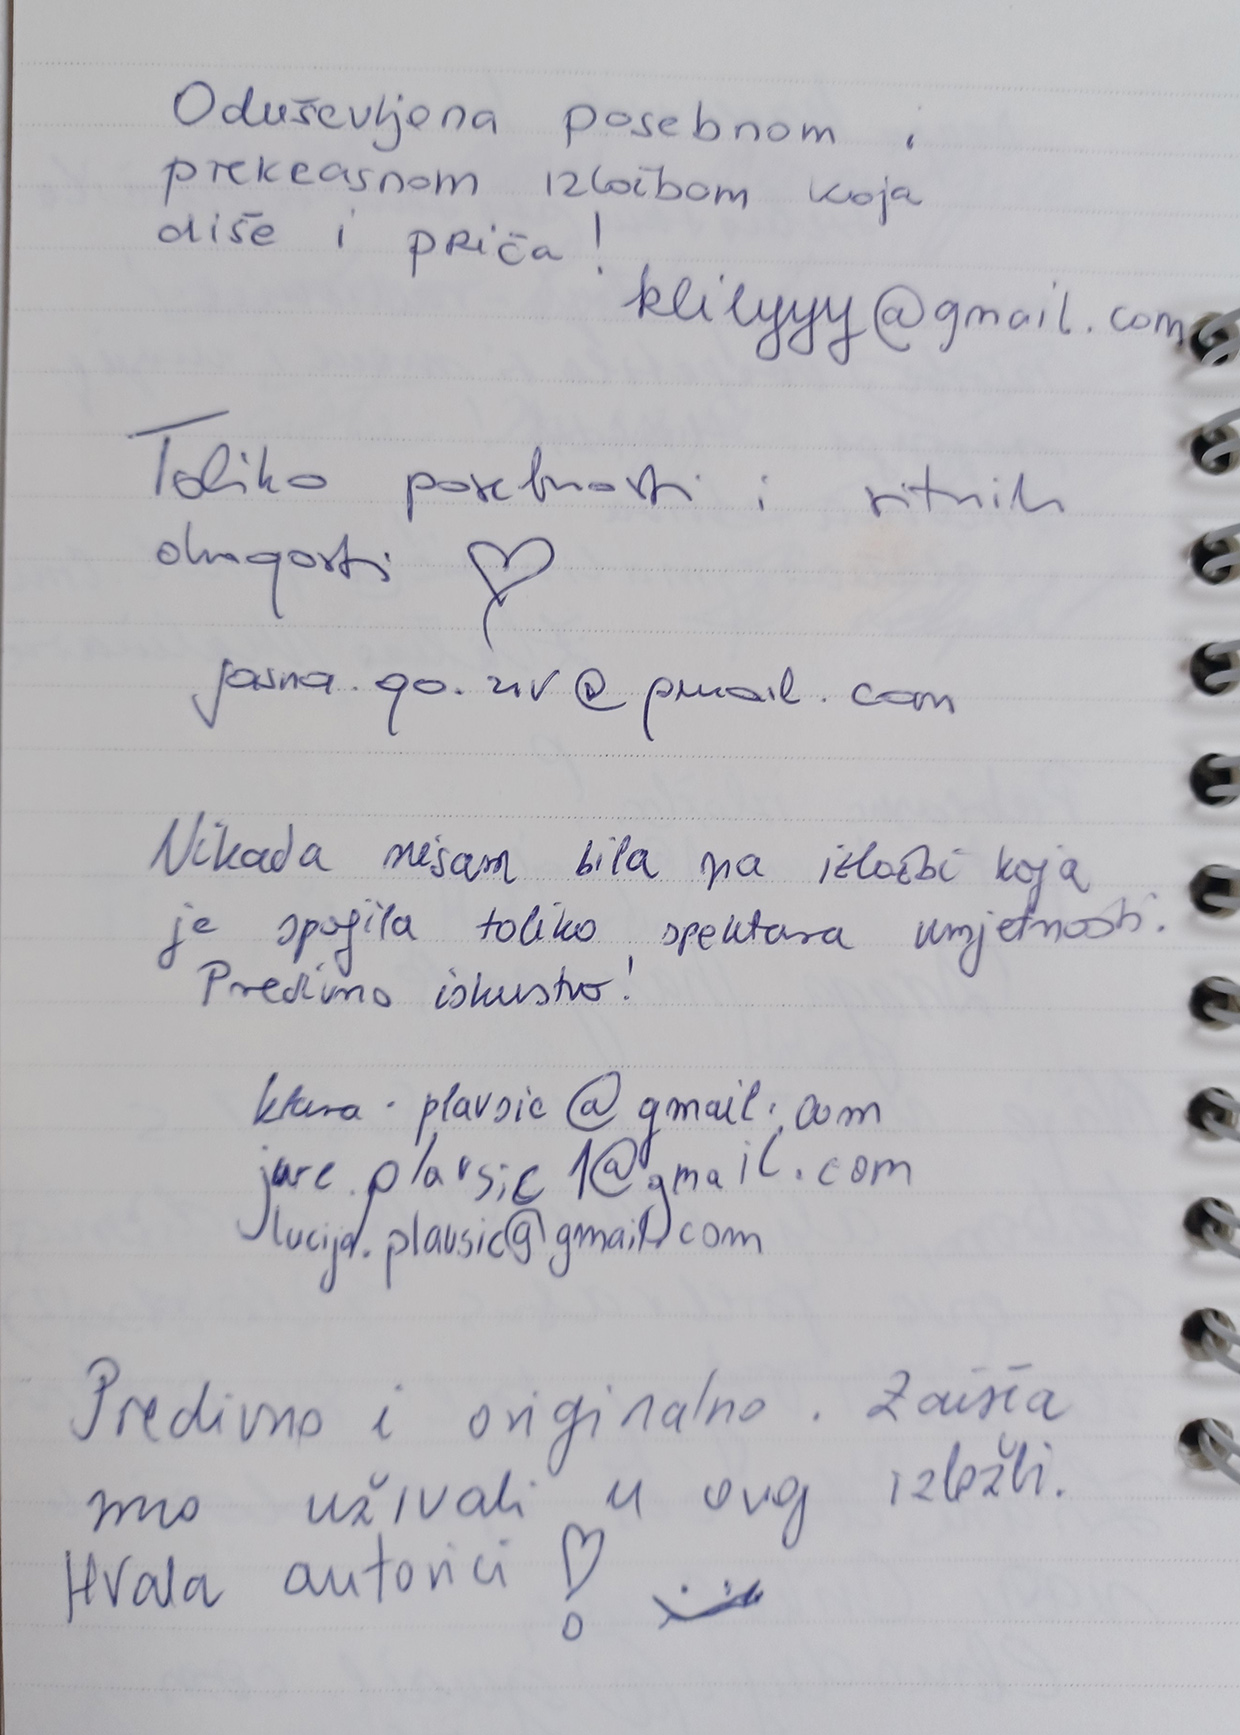 Oduševljena posebnom i
prekrasnom izložbom koja
diše i priča!
klilyyy@gmail.com
Toliko posebnosti i sitnih
dragosti ♡
jasna.go.ziv@gmail.com
Nikada nisam bila na izložbi koja
je spojila toliko spektara umjetnosti.
Predivno iskustvo!
klara.plavsic@gmail.com
jure.plavsic1@gmail.com
lucija.plavsic@gmail.com
Predivno i originalno. Zaista
smo uživali u ovoj izložbi.
Hvala autorici